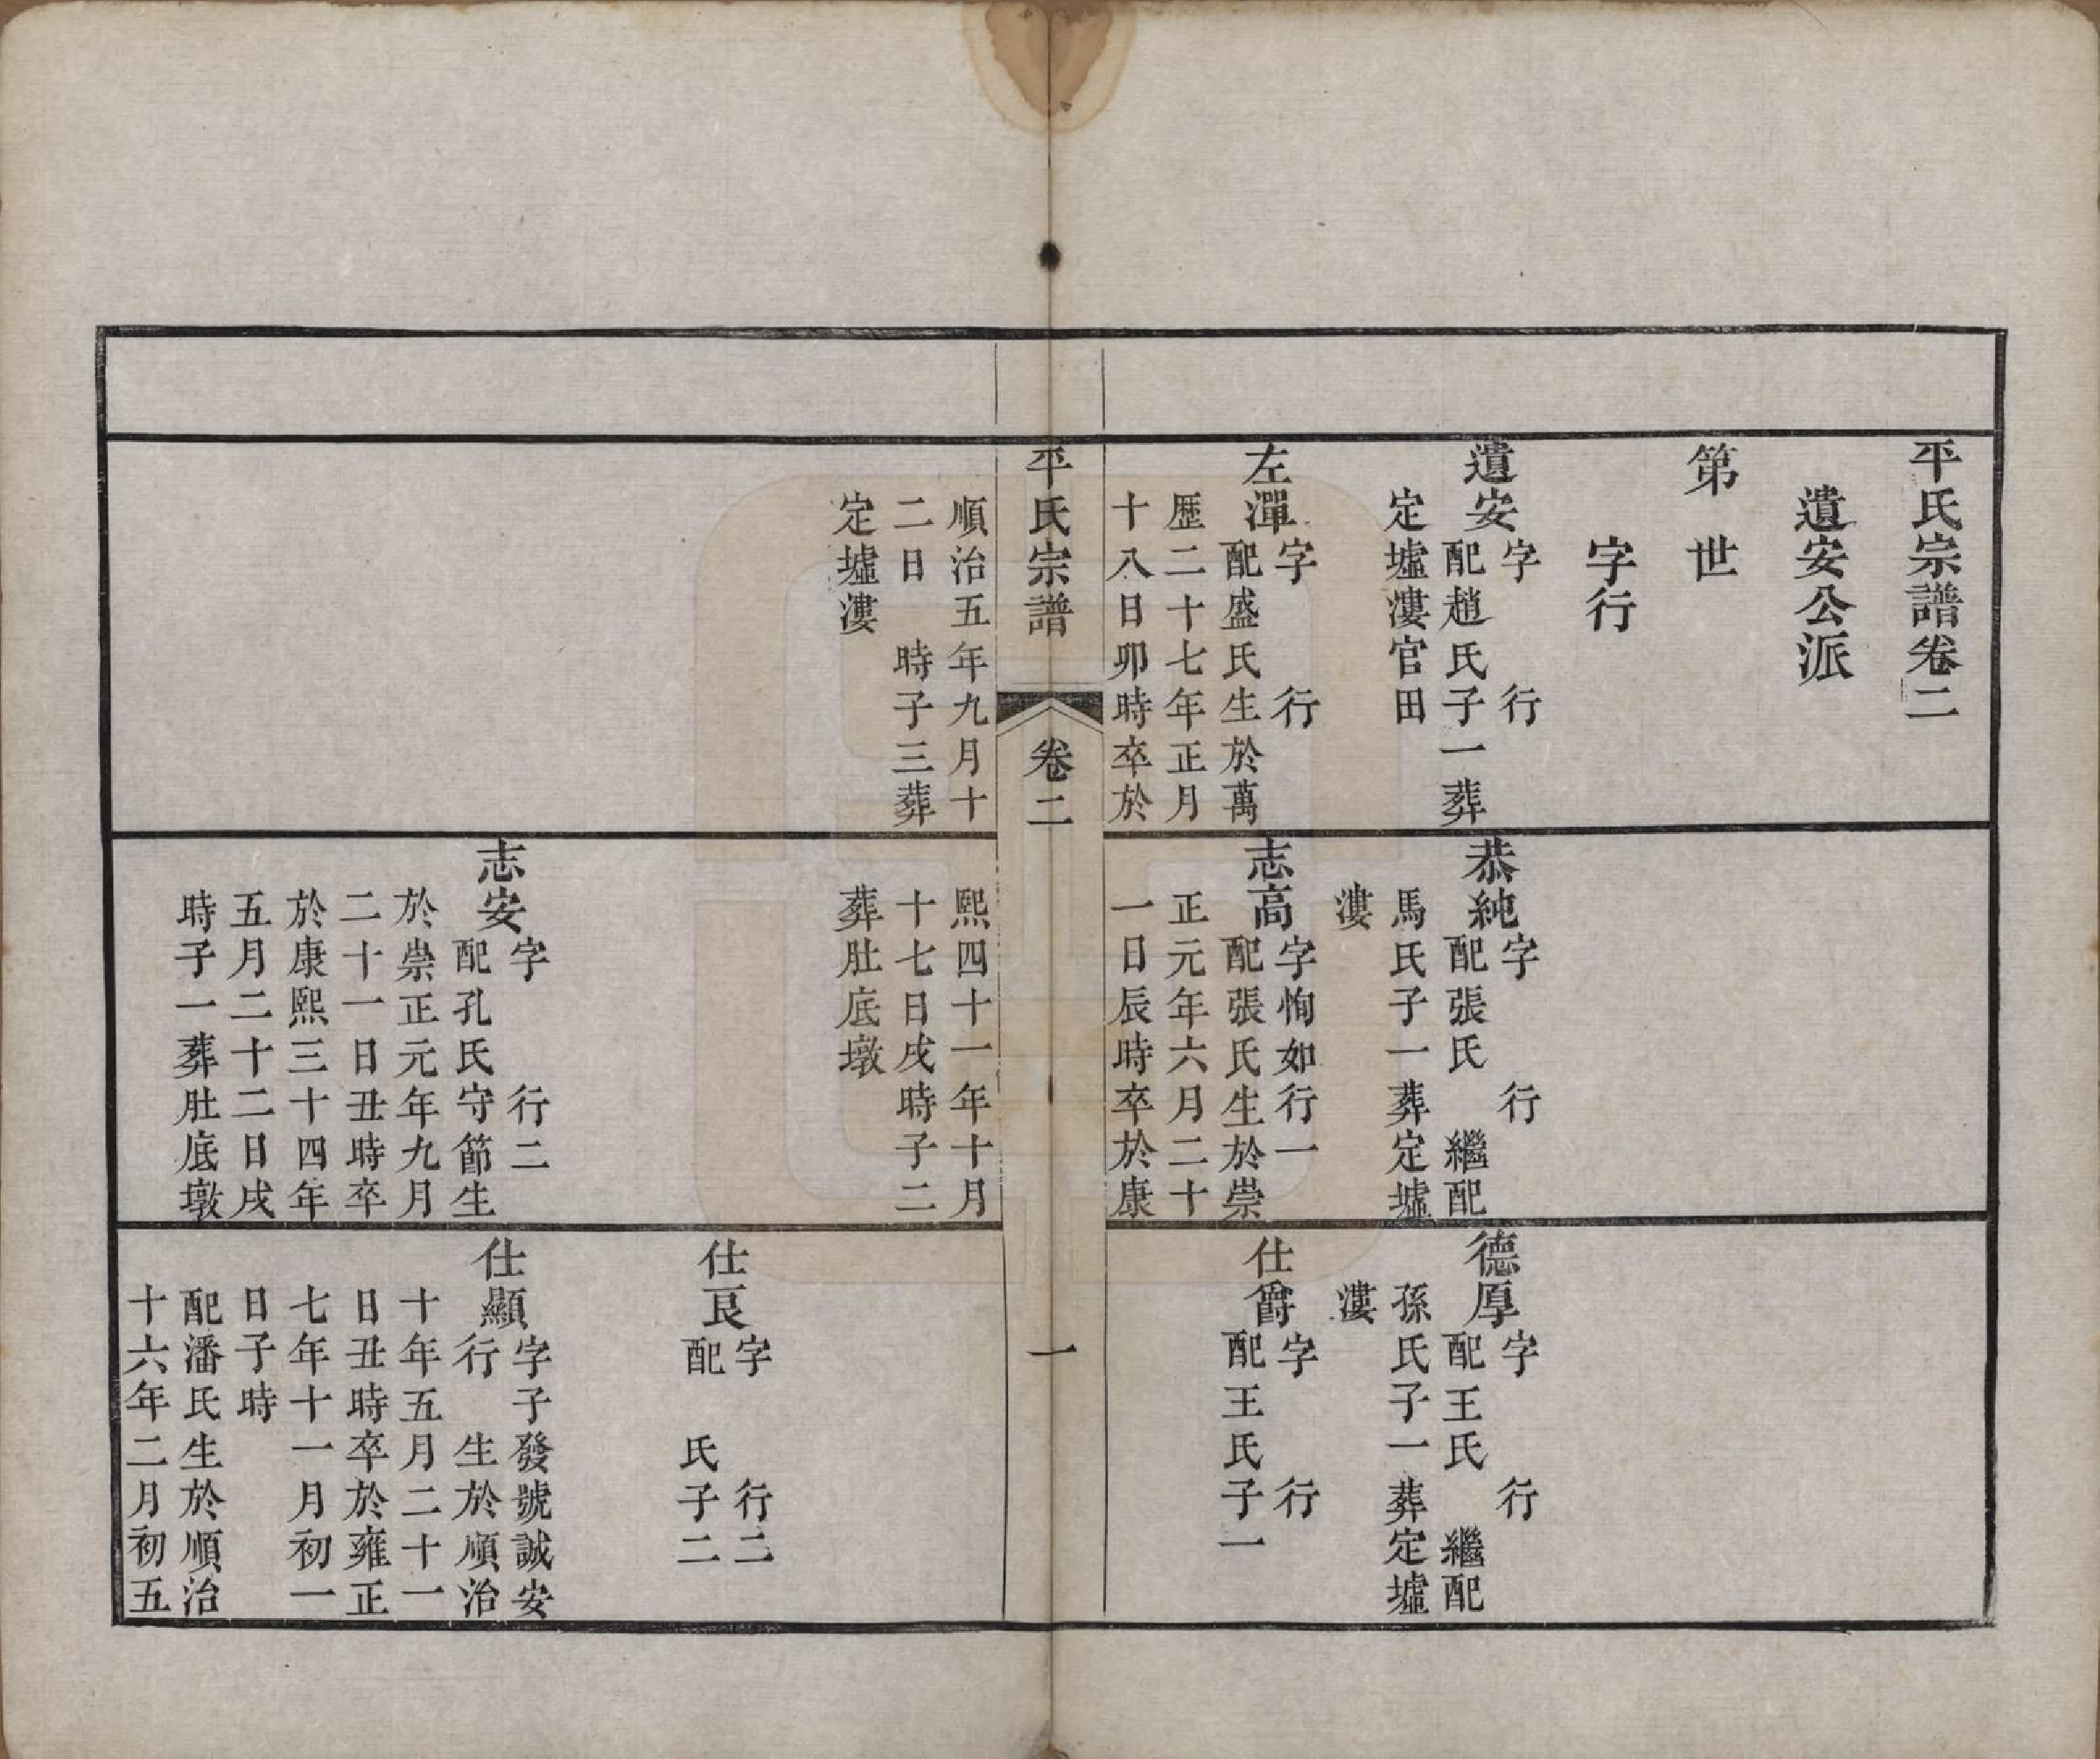 平氏宗譜卷二
遺安公派
第　世
字行
遺安
字　行
配趙氏子一葬
定墟漊官田
左潬
字　行
配盛氏生於萬
歷二十七年正月
十八日卯時卒於
恭純
字　行
配張氏　繼配
馬氏子一葬定墟
漊
志高
字恂如行一
配張氏生於崇
正元年六月二十
一日辰時卒於康
德厚
字　行
配王氏　繼配
孫氏子一葬定墟
漊
仕爵
字　行
配王氏子一
平氏宗譜
卷二
一
順治五年九月十
二日　時子三葬
定墟漊
熙四十一年十月
十七日戌時子二
葬肚底墩
志安
字　行二
配孔氏守節生
於崇正元年九月
二十一日丑時卒
於康熙三十四年
五月二十二日戌
時子一葬肚底墩
仕良
字　行二
配　氏子二
仕顯
字子發號誠安
行　生於順治
十年五月二十一
日丑時卒於雍正
七年十一月初一
日子時
配潘氏生於順治
十六年二月初五